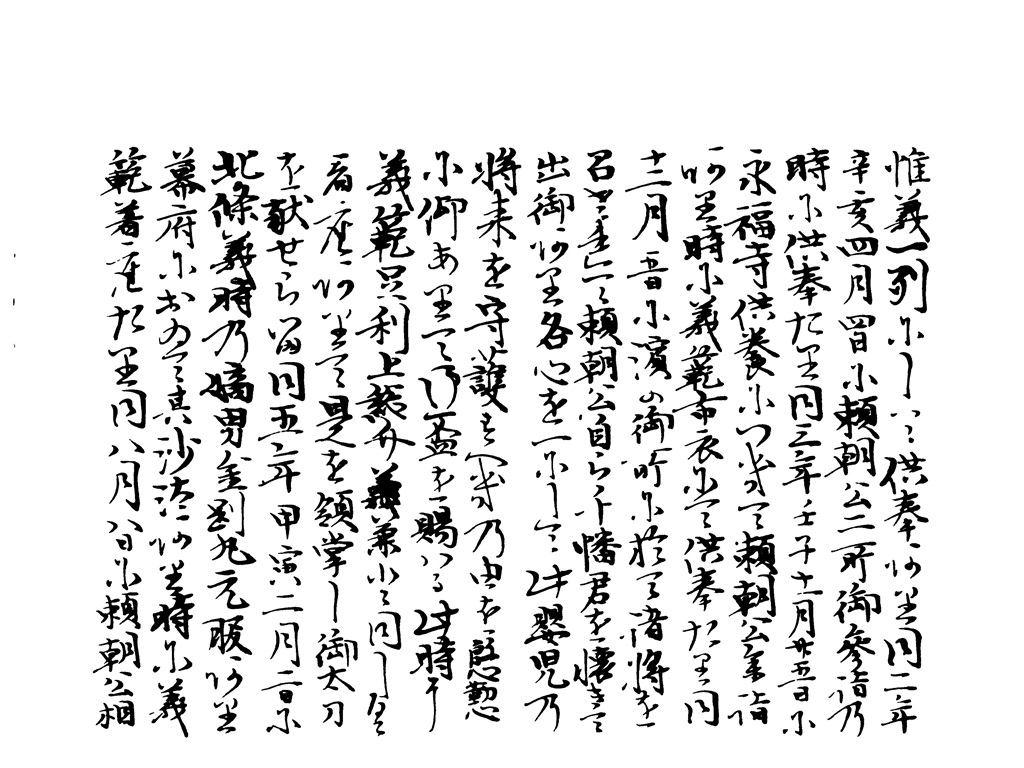 惟義一列にして供奉ありき同二年
辛亥四月四日に頼朝公二所御參詣乃
時に供奉たり同三年壬子十一月廿五日に
永福寺供養につきて頼朝公參詣
あり時に義範布衣にて供奉たり同
十二月五日に濱の御所に於て諸將を
召集て頼朝公自ら千幡君を懐きて
出御あり各心を一にして此嬰児乃
將来を守護すへき乃由を慇懃
に仰ありて御盃を賜はる此時に
義範足利上総介義兼と同しく
着座ありて是を領掌し御太刀
を献せらる同五年甲寅二月二日に
北條義時乃嫡男金剛丸元服あり
幕府におゐて其沙汰あり時に義
範着座たり同八月八日に頼朝公相